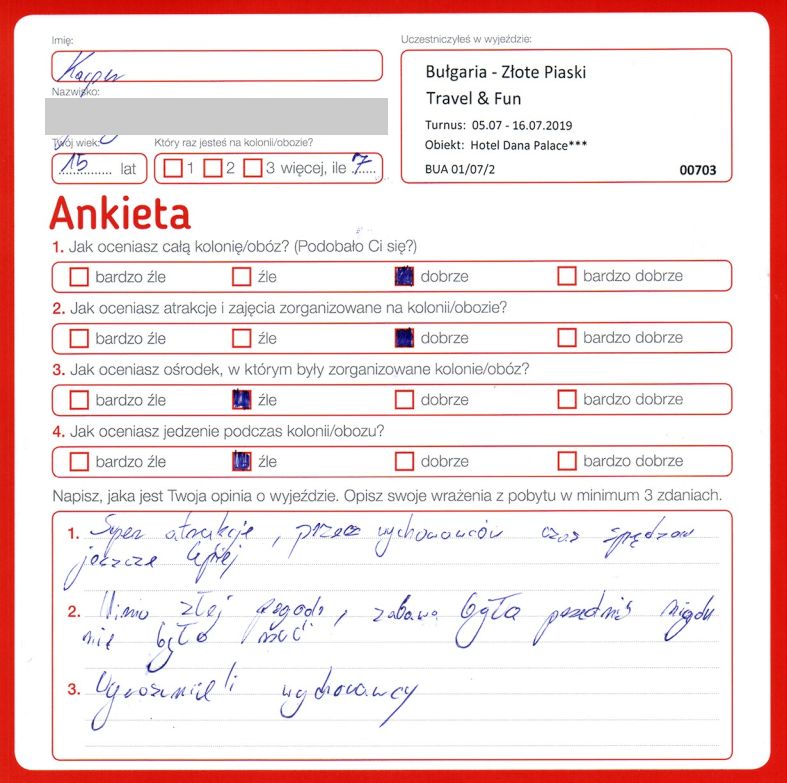 Imię:
Kacper
Nazwisko:
Twój wiek:
15 lat
Który raz jesteś na kolonii/obozie?
1 2 3 więcej, ile 7
Uczestniczyłeś w wyjeździe:
Bułgaria - Złote Piaski
Travel & Fun
Turnus: 05.07 - 16.07.2019
Obiekt: Hotel Dana Palace***
BUA 01/07/2 00703
Ankieta
1. Jak oceniasz całą kolonię/obóz? (Podobało Ci się?)
bardzo źle źle dobrze bardzo dobrze
2. Jak oceniasz atrakcje i zajęcia zorganizowane na kolonii/obozie?
bardzo źle źle dobrze bardzo dobrze
3. Jak oceniasz ośrodek, w którym były zorganizowane kolonie/obóz?
bardzo źle źle dobrze bardzo dobrze
4. Jak oceniasz jedzenie podczas kolonii/obozu?
bardzo źle źle dobrze bardzo dobrze
Napisz, jaka jest Twoja opinia o wyjeździe. Opisz swoje wrażenia z pobytu w minimum 3 zdaniach.
1. Super atrakcje, przez wychowawców czas spędzam
jeszcze lepiej
2. Mimo złej pogody, zabawa była przednia nigdy
nie było
3. wychowawcy